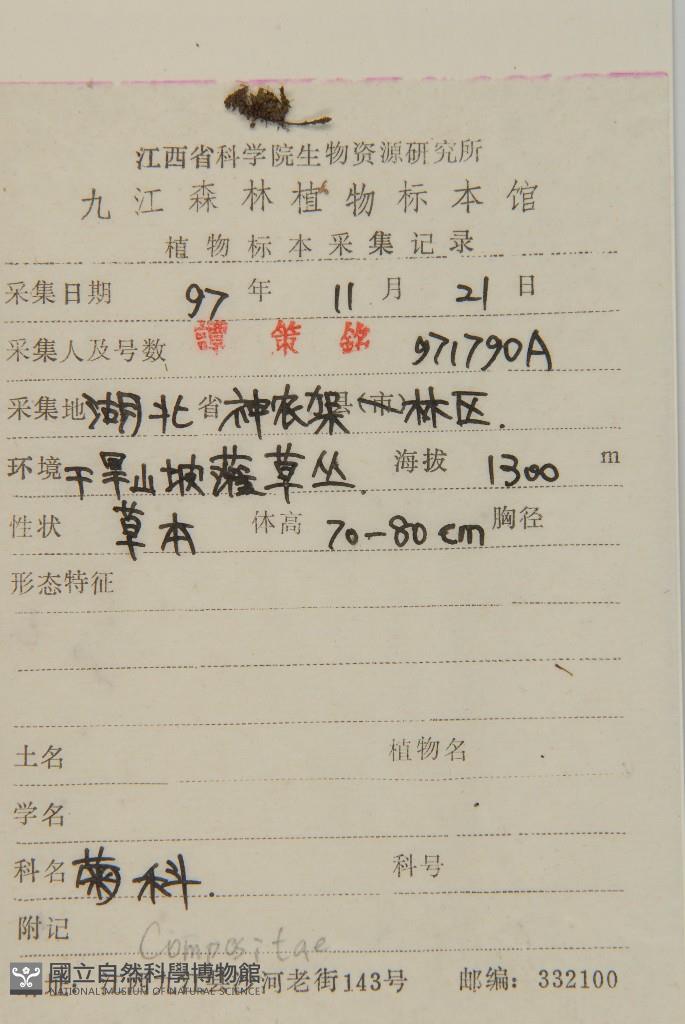 江西省科学院生物资源研究所
九江森林植物标本馆
植物标本采集记录
采集日期 97 年 11 月 21 日
采集人及号数 譚策銘 971790A
采集地 湖北 省 神农架 县(市) 林区.
环境 干旱山坡灌草丛. 海拔 1300 m
性状 草本 体高 70-80cm 胸径
形态特征
土名 植物名
学名
科名 菊科. 科号
附记
Compositae
國立自然科學博物館
NATIONAL MUSEUM OF NATURAL SCIENCE
河老街143号 邮编: 332100